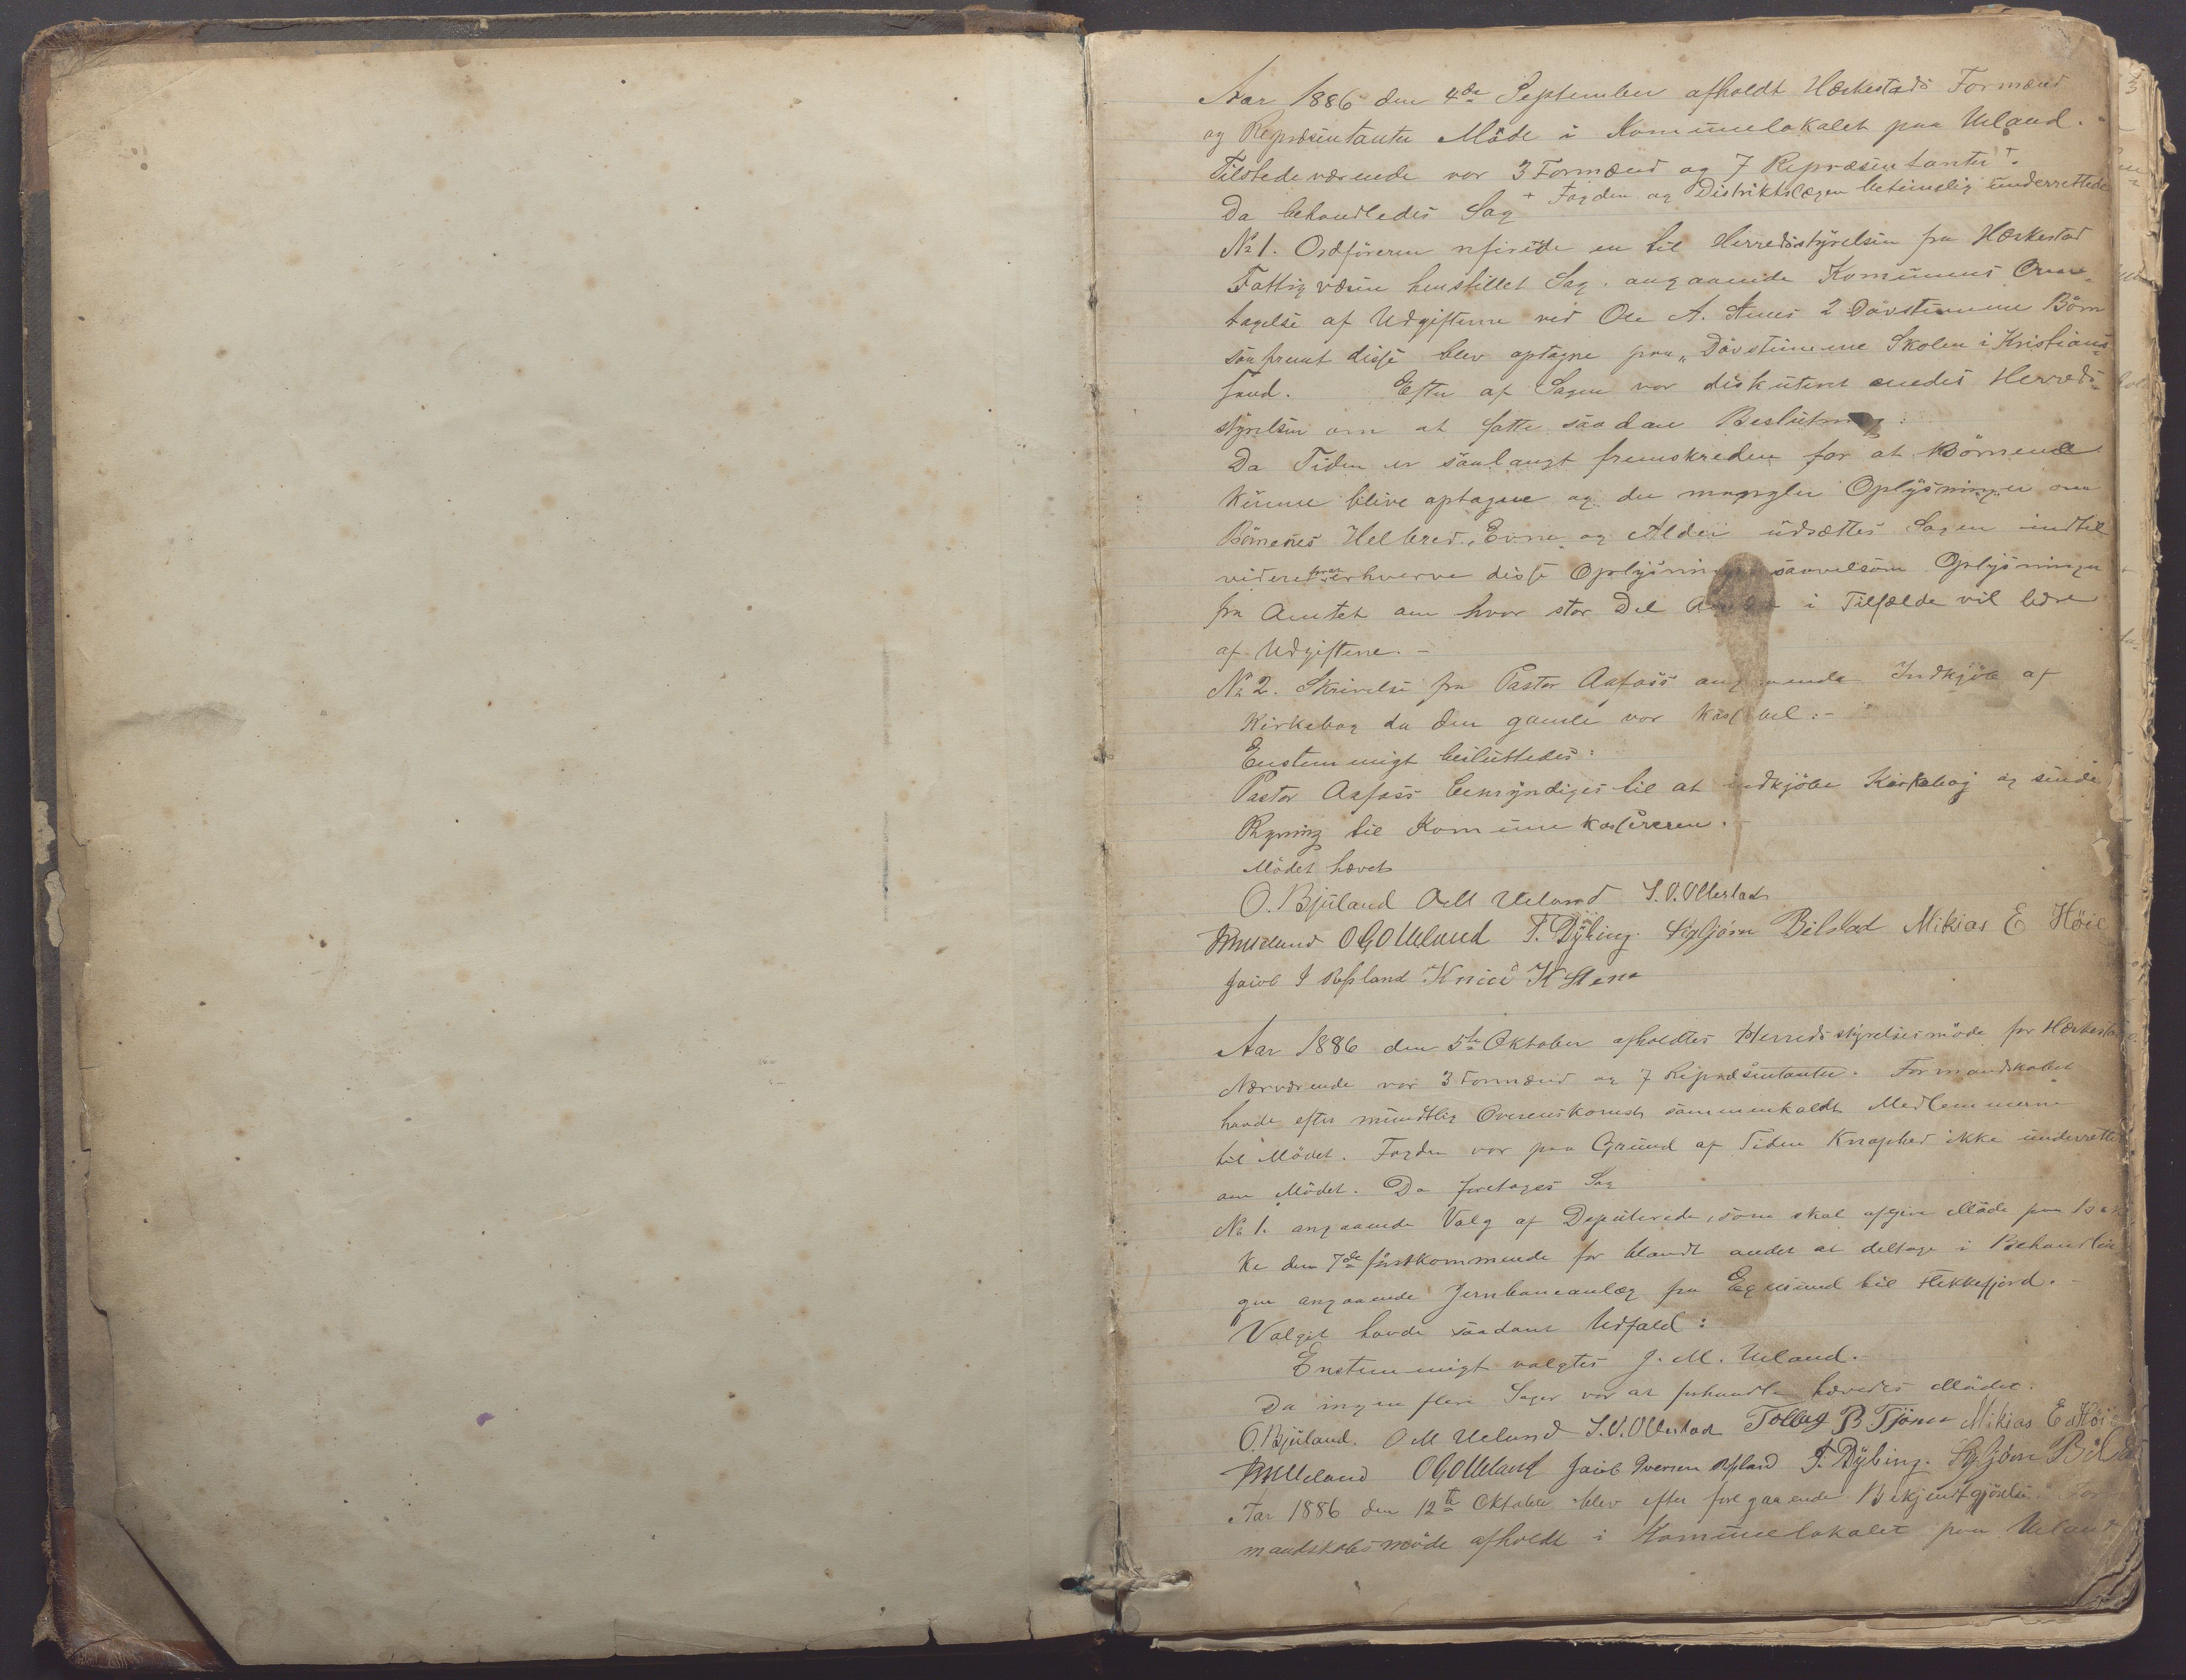 Aar 1886 den 4de September afholdt Hæskestads Formænd
og Repræsentanter Möde i Kommunelokalet paa Ueland.
Tilstedeværende var 3 Formænd og 7 Repræsentanter +.
Da behandledes Sag + Fogden og Distriktslægen betimelig underrettede
No 1. Ordföreren refererede en til Herredsstyrelsen fra Hæskestad
Fattigvæsen henstillet Sag angaaende Kommunens Over-
tagelse af Udgifterne ved Ole A. 2 Dövstumme Börn
saafremt disse blev optagne paa „Dövstumme Skolen i Kristians-
sand. Efter at Sagen var diskuteret enedes Herreds-
styrelsen om at fatte saadan Beslutning:
Da Tiden er saalangt fremskreden for at Börnene
kunne blive optagne og der mangler Oplysninger om
Börnenes Helbred, Evne og Alder udsættes Sagen indtil
videre for at erhverve disse Oplysninger saavelsom Oplysninger
fra Amtet om hvor stor Del Amtet i Tilfælde vil bære
af Udgifterne. -
No 2. Skrivelse fra Pastor Aafoss angaaende Indkjöb af
Kirkebog da den gamle var kassabel:-
Enstemmigt besluttedes:
Pastor Aafoss bemyndiges til at indkjöbe Kirkebog og sende
Regning til Kommunekassereren. -
Mödet hævet
O. Bjuland O M Ueland S. O. Ollestad
J M Ueland O G O Ueland T. Dybing. Sigbjörn Bilstad Mikias E Höie
Jacob I Refsland Knud K Stene
Aar 1886 den 5te Oktober afholdtes Herredsstyrelsesmöde for Hæskestad
Nærværende var 3 Formænd og 7 Repræsentanter. Formandskabet
havde efter mundtlig Overenskomst sammenkaldt Medlemmerne
til Mödet. Fogden var paa Grund af Tiden Knaphed ikke underrettet
om Mödet. Da foretoges Sag
No 1. angaaende Valg af Deputerede, som skal afgive Möde paa
ke den 7de förstkommende for blandt andet at deltage i Behandlin
gen angaaende Jernbaneanlæg fra Egersund til Flekkefjord. -
Valget havde saadant Udfald:
Enstemmigt valgtes J. M. Ueland. -
Da ingen flere Sager var at forhandle hævedes Mödet.
O. Bjuland. O M Ueland S. O. Ollestad Tollag B Tjörn Mikias E Höie
J M Ueland O G O Ueland Jacob Iversen Refsland T. Dybing. Sigbjörn Bilstad
Aar 1886 den 12te Oktober blev efter foregaaende Bekjendtgjörelse For
mandskabsmöde afholdt i Kommunelokalet paa Ueland